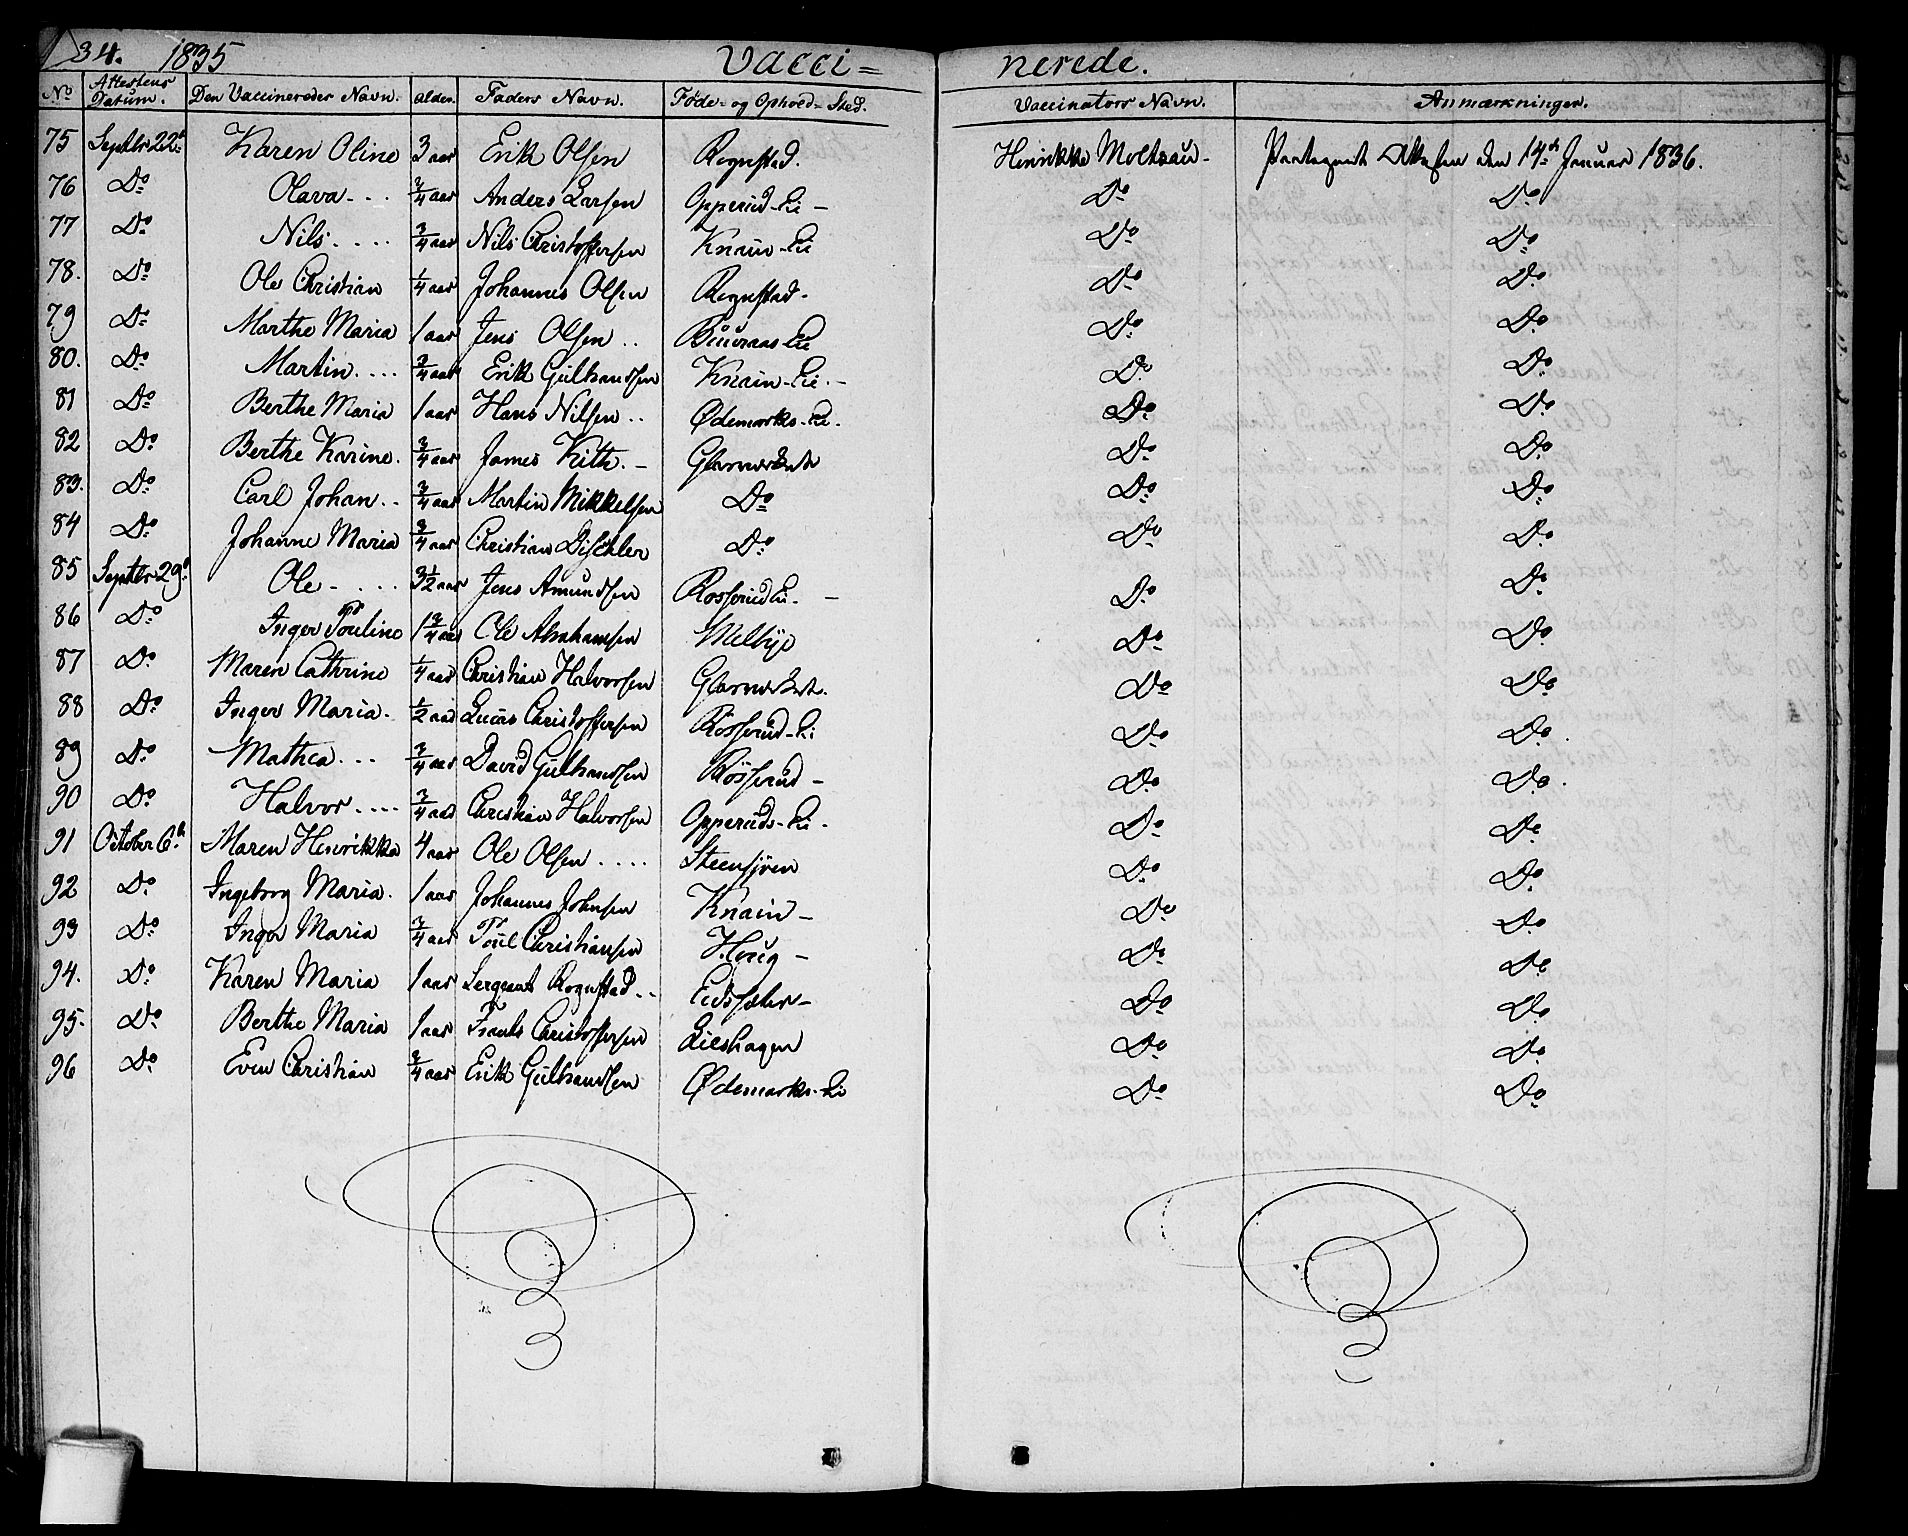 134. 1835 Vacci= nerede.
No Attestens Datum. Den Vaccineredes Navn. Alder. Faders Navn. Føde- og Ophold-Sted. Vaccinators Navn. Anmærkninger.
75 Septbr 22de Karen Oline 3 aar Erik Olsen Rognstad. Henrikke Moltzau - den 14de Januar 1836.
76 Do Olava - .. 3/4 aar Anders Larsen Opperud-Eie - Do Do
77 Do Nils. ... 3/4 aar Nils Christoffersen Knain-Eie Do Do
78. Do Ole Christian 1/4 aar Johannes Olsen Rognstad. Do Do
79 Do Marthe Maria 1 aar Jens Olsen .. Do Do
80. Do Martin. ... 3/4 aar Erik Gulbrandsen Knain-Eie. - Do Do
81 Do Berthe Maria 1 aar Hans Nilsen .. Ødemarks-Ei. Do Do
82 Do Berthe Karine. 3/4 aar James Kith. - Glasværket Do Do
83. Do Carl Johan. .. 3/4 aar Martin Mikkelsen Do Do Do
84 Do Johanne Maria 3/4 aar Christian Dischler Do Do Do
85 Septbr 29de Ole - . .. 3 1/2 aar Jens Amundsen Rosserud Ei. - Do Do
86 Do Inger Pouline 1 3/4 aar Ole Abrahamsen Melbye Do Do
87 Do Maren Cathrine 1/4 aar Christian Halvorsen Glasværket. Do Do
88 Do Inger Maria. 1/2 aar Lucas Christoffersen Rosserud-Ei Do Do.
89 Do Mathea. .. 3/4 aar David Gulbrandsen Rosserud - Do Do.
90 Do Halvor. ... 3/4 aar Christian Halvorsen Opperuds-Ei. Do Do
91 October 6te Maren Henrikka 4 aar Ole Olsen .... Steensjøen Do Do
92 Do Ingeborg Maria. 1 aar Johannes Johnsen Knain - Do Do
93 Do Inger Maria 3/4 aar Poul Christiansen Houg - Do Do
94. Do Karen Maria 1 aar Sergeant Rognstad .. Do Do
95. Do Berthe Maria 1 aar Frants Christoffersen Lieshagen Do Do
96 Do Even Christian 3/4 aar Erik Gulbrandsen Ødemarks-Ei Do Do